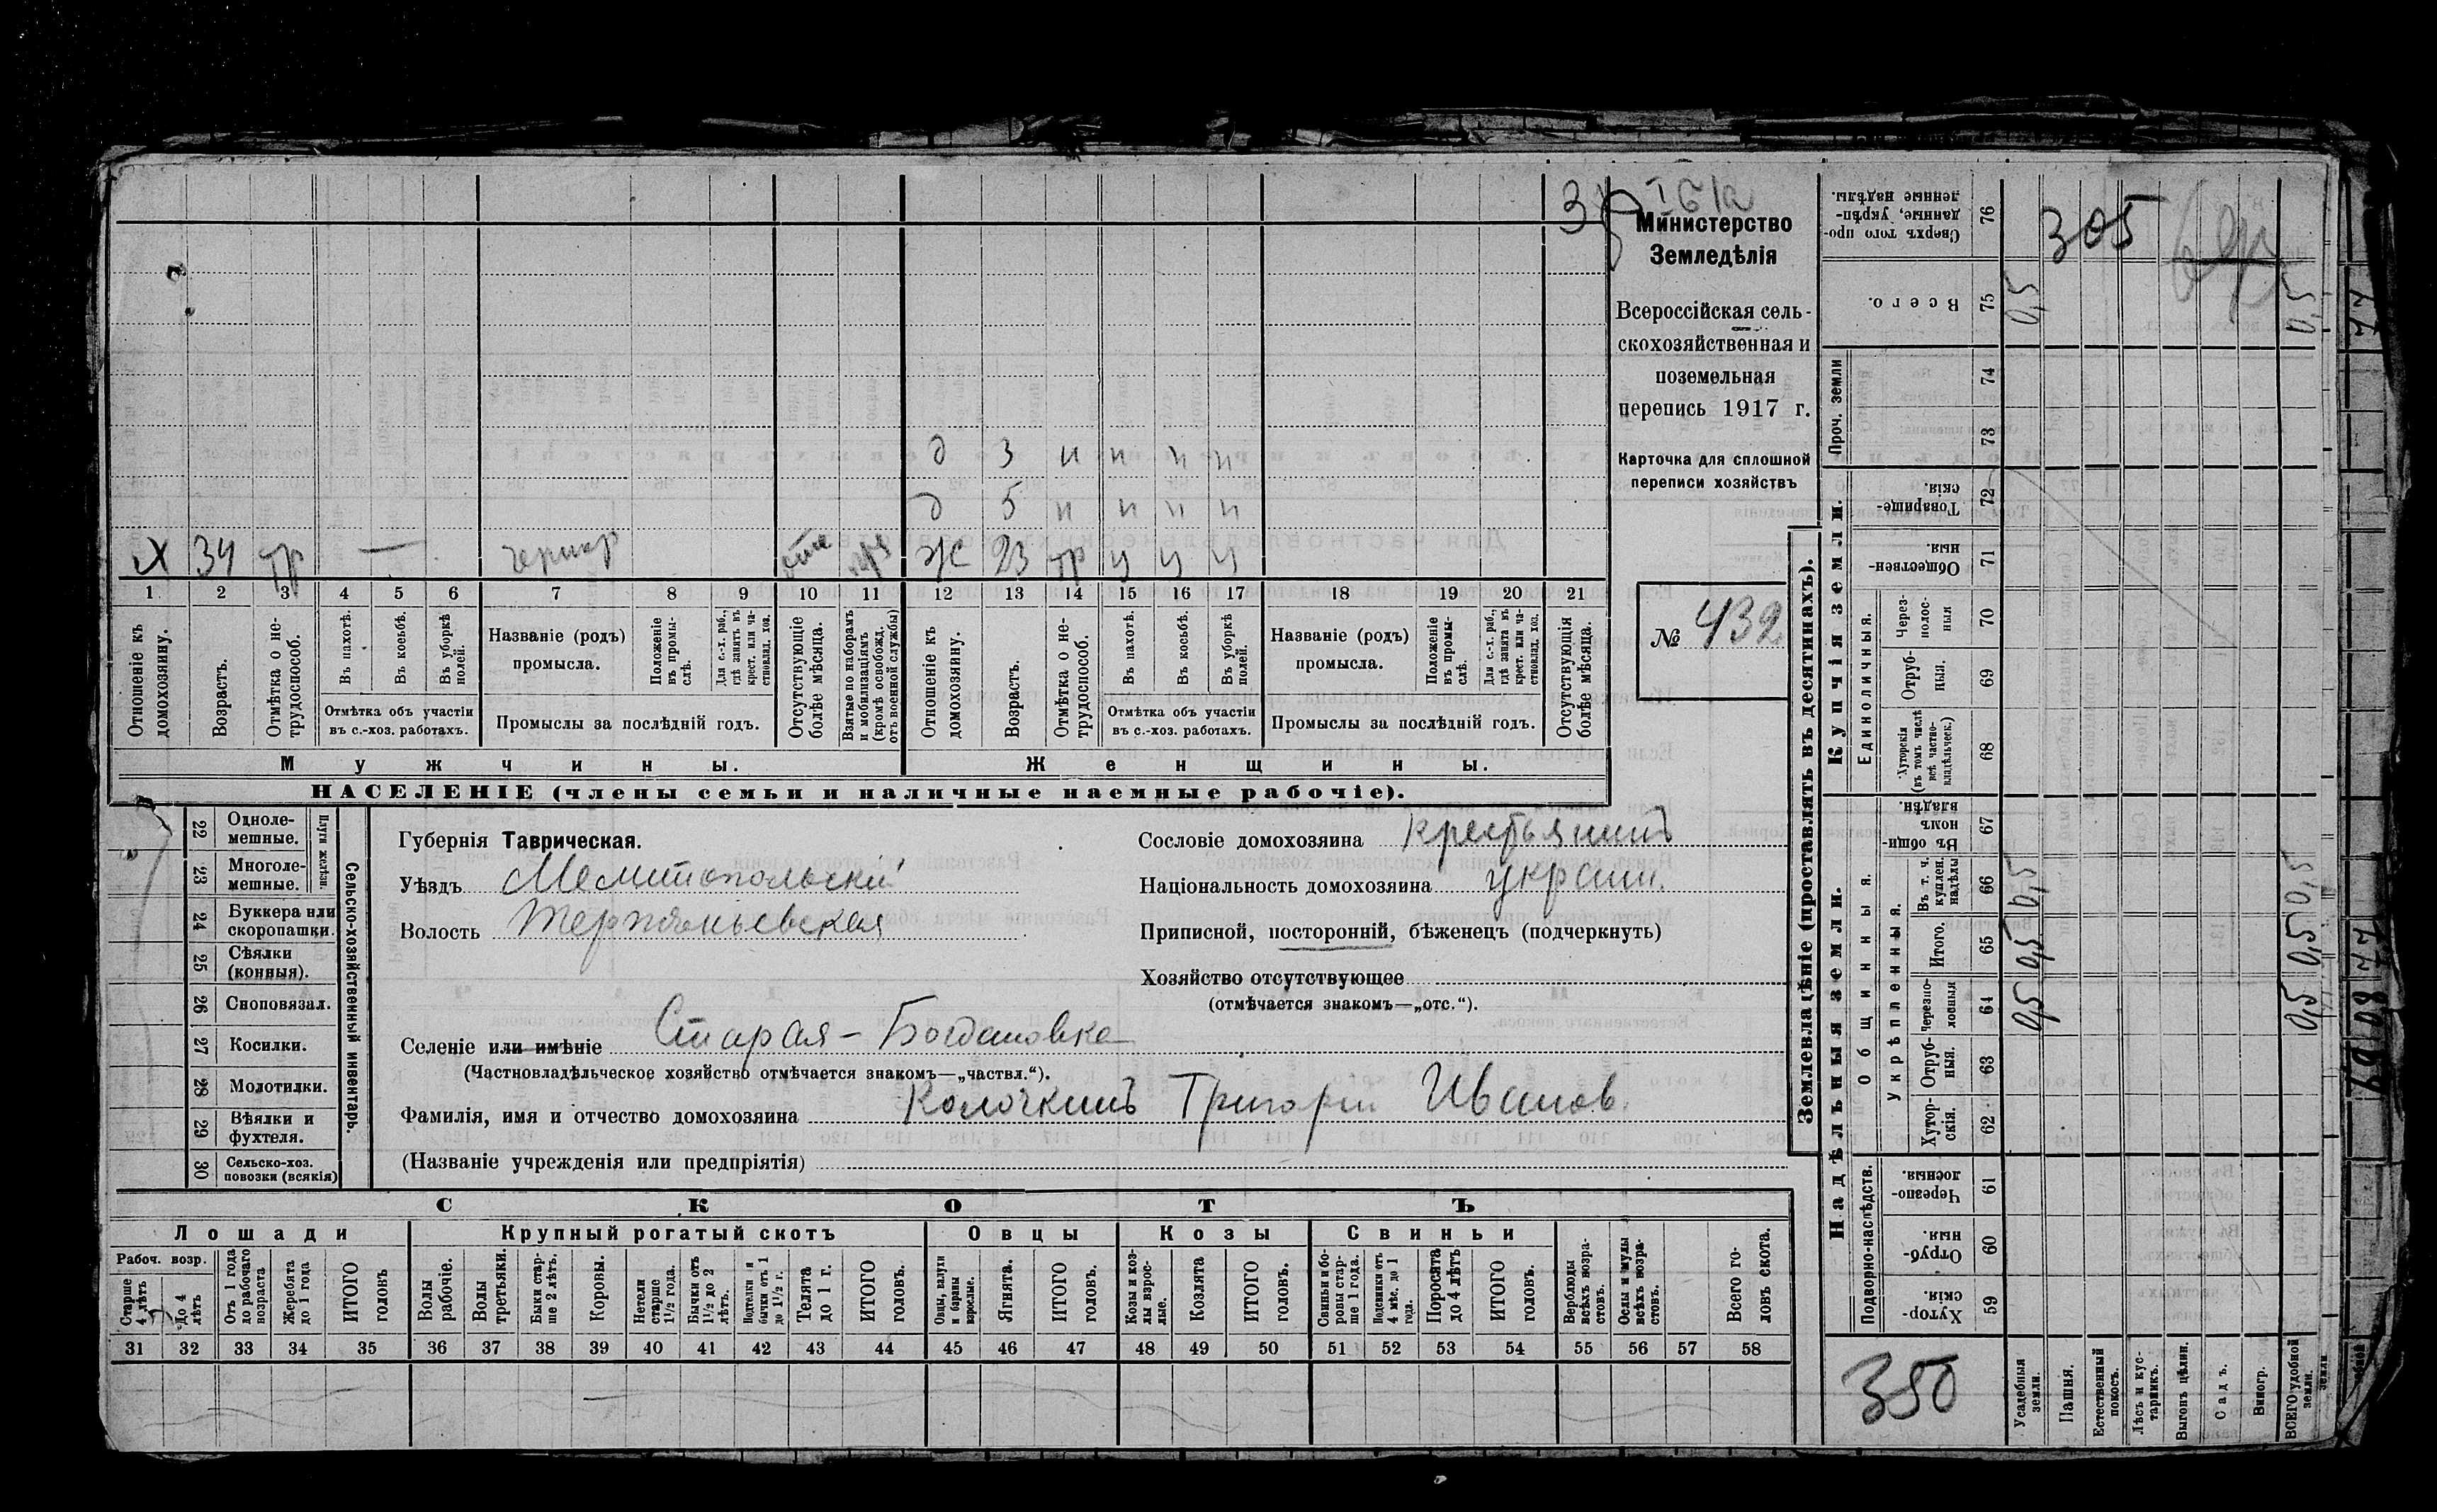 305
Министерство
Земледѣлія
Всероссійская сель-
скохозяйственная и
поземельная
перепись 1917 г.
Карточка для сплошной
переписи хозяйствъ
№ 432
д 3 н н н н
д 5 н н н н
х 34 тр — отс Ж 23 тр ч ч ч
1 2 3 4 5 6 7 8 9 10 11 12 13 14 15 16 17 18 19 20 21
Отношеніе къ домохозяину.
Возрастъ.
Отмѣтка о нетрудоспособ.
Въ пахотѣ.
Въ косьбѣ.
Въ уборкѣ полей.
Отмѣтка объ участіи въ с.-хоз. работахъ.
Названіе (родъ) промысла.
Положеніе въ промыслѣ.
Для с.-х. раб., гдѣ занятъ въ крест. или частновлад. хоз.
Промыслы за послѣдній годъ.
Отсутствующіе болѣе мѣсяца.
Взятые по наборамъ и мобилизаціямъ (кромѣ освобожд. отъ военной службы)
Отношеніе къ домохозяину.
Возрастъ.
Отмѣтка о нетрудоспособ.
Въ пахотѣ.
Въ косьбѣ.
Въ уборкѣ полей.
Отмѣтка объ участіи въ с.-хоз. работахъ.
Названіе (родъ) промысла.
Положеніе въ промыслѣ.
Для с.-х. раб., гдѣ занята въ крест. или частновлад. хоз.
Промыслы за послѣдній годъ.
Отсутствующія болѣе мѣсяца.
Мужчины. Женщины.
НАСЕЛЕНІЕ (члены семьи и наличные наемные рабочіе).
22 Однолемешные.
23 Многолемешные.
Плуги желѣзн.
24 Буккера или скоропашки.
25 Сѣялки (конныя).
26 Сноповязал.
27 Косилки.
28 Молотилки.
29 Вѣялки и фухтеля.
30 Сельско-хоз. повозки (всякія)
Сельско-хозяйственный инвентарь.
Губернія Таврическая.
Уѣздъ Мелитопольскій
Волость Терпѣньевская
Сословіе домохозяина крестьянинъ
Національность домохозяина украин.
Приписной, посторонній, бѣженецъ (подчеркнуть)
Хозяйство отсутствующее
(отмѣчается знакомъ—„отс.“).
Селеніе или имѣніе Старая-Богдановка
(Частновладѣльческое хозяйство отмѣчается знакомъ—„частвл.“).
Фамилія, имя и отчество домохозяина Колочкинъ Григорій Иванов.
(Названіе учрежденія или предпріятія)
СКОТЪ
Лошади Крупный рогатый скотъ Овцы Козы Свиньи
Рабоч. возр.
Старше 4 лѣтъ
До 4 лѣтъ
Отъ 1 года до рабочаго возраста
Жеребята до 1 года
ИТОГО головъ
Волы рабочіе.
Волы третьяки.
Быки старше 2 лѣтъ.
Коровы.
Нетели старше 1½ года.
Бычки отъ 1½ до 2 лѣтъ.
Подтелки и бычки отъ 1 до 1½ г.
Телята до 1 г.
ИТОГО головъ.
Овцы, валухи и бараны взрослые.
Ягнята.
ИТОГО головъ.
Козы и козлы взрослые.
Козлята
ИТОГО головъ.
Свиньи и боровы старше 1 года.
Подсвинки отъ 4 мѣс. до 1 года.
Поросята до 4 лѣтъ
ИТОГО головъ.
Верблюды всѣхъ возрастовъ.
Ослы и мулы всѣхъ возрастовъ.
Всего головъ скота.
31 32 33 34 35 36 37 38 39 40 41 42 43 44 45 46 47 48 49 50 51 52 53 54 55 56 57 58
Землевладѣніе (проставлять въ десятинахъ).
Надѣльныя земли. Купчія земли. Проч. земли
Подворно-наслѣдств.
Общинныя.
Укрѣпленныя.
Единоличныя.
Хуторскія. 59
Отрубныя. 60
Черезполосныя. 61
Хуторскія. 62
Отрубныя. 63
Черезполосныя 64 0,5 0,5
Итого. 65 0,5 0,5
Въ т. ч. куплен. надѣлы 66 0,5 0,5
Въ общинномъ владѣн. 67
Хуторскія (въ томъ числѣ всѣ частновладѣльческ.) 68
Отрубныя. 69
Черезполосныя 70
Общественныя. 71
Товарищескія. 72
73
74
Всего. 75 0,5 0,5
Сверхъ того проданные, укрѣпленные надѣлы. 76
350
Усадебныя земли.
Пашня.
Естественный покосъ.
Лѣсъ и кустарникъ.
Выгонъ цѣлин.
Садъ.
Виногр.
ВСЕГО удобной земли.